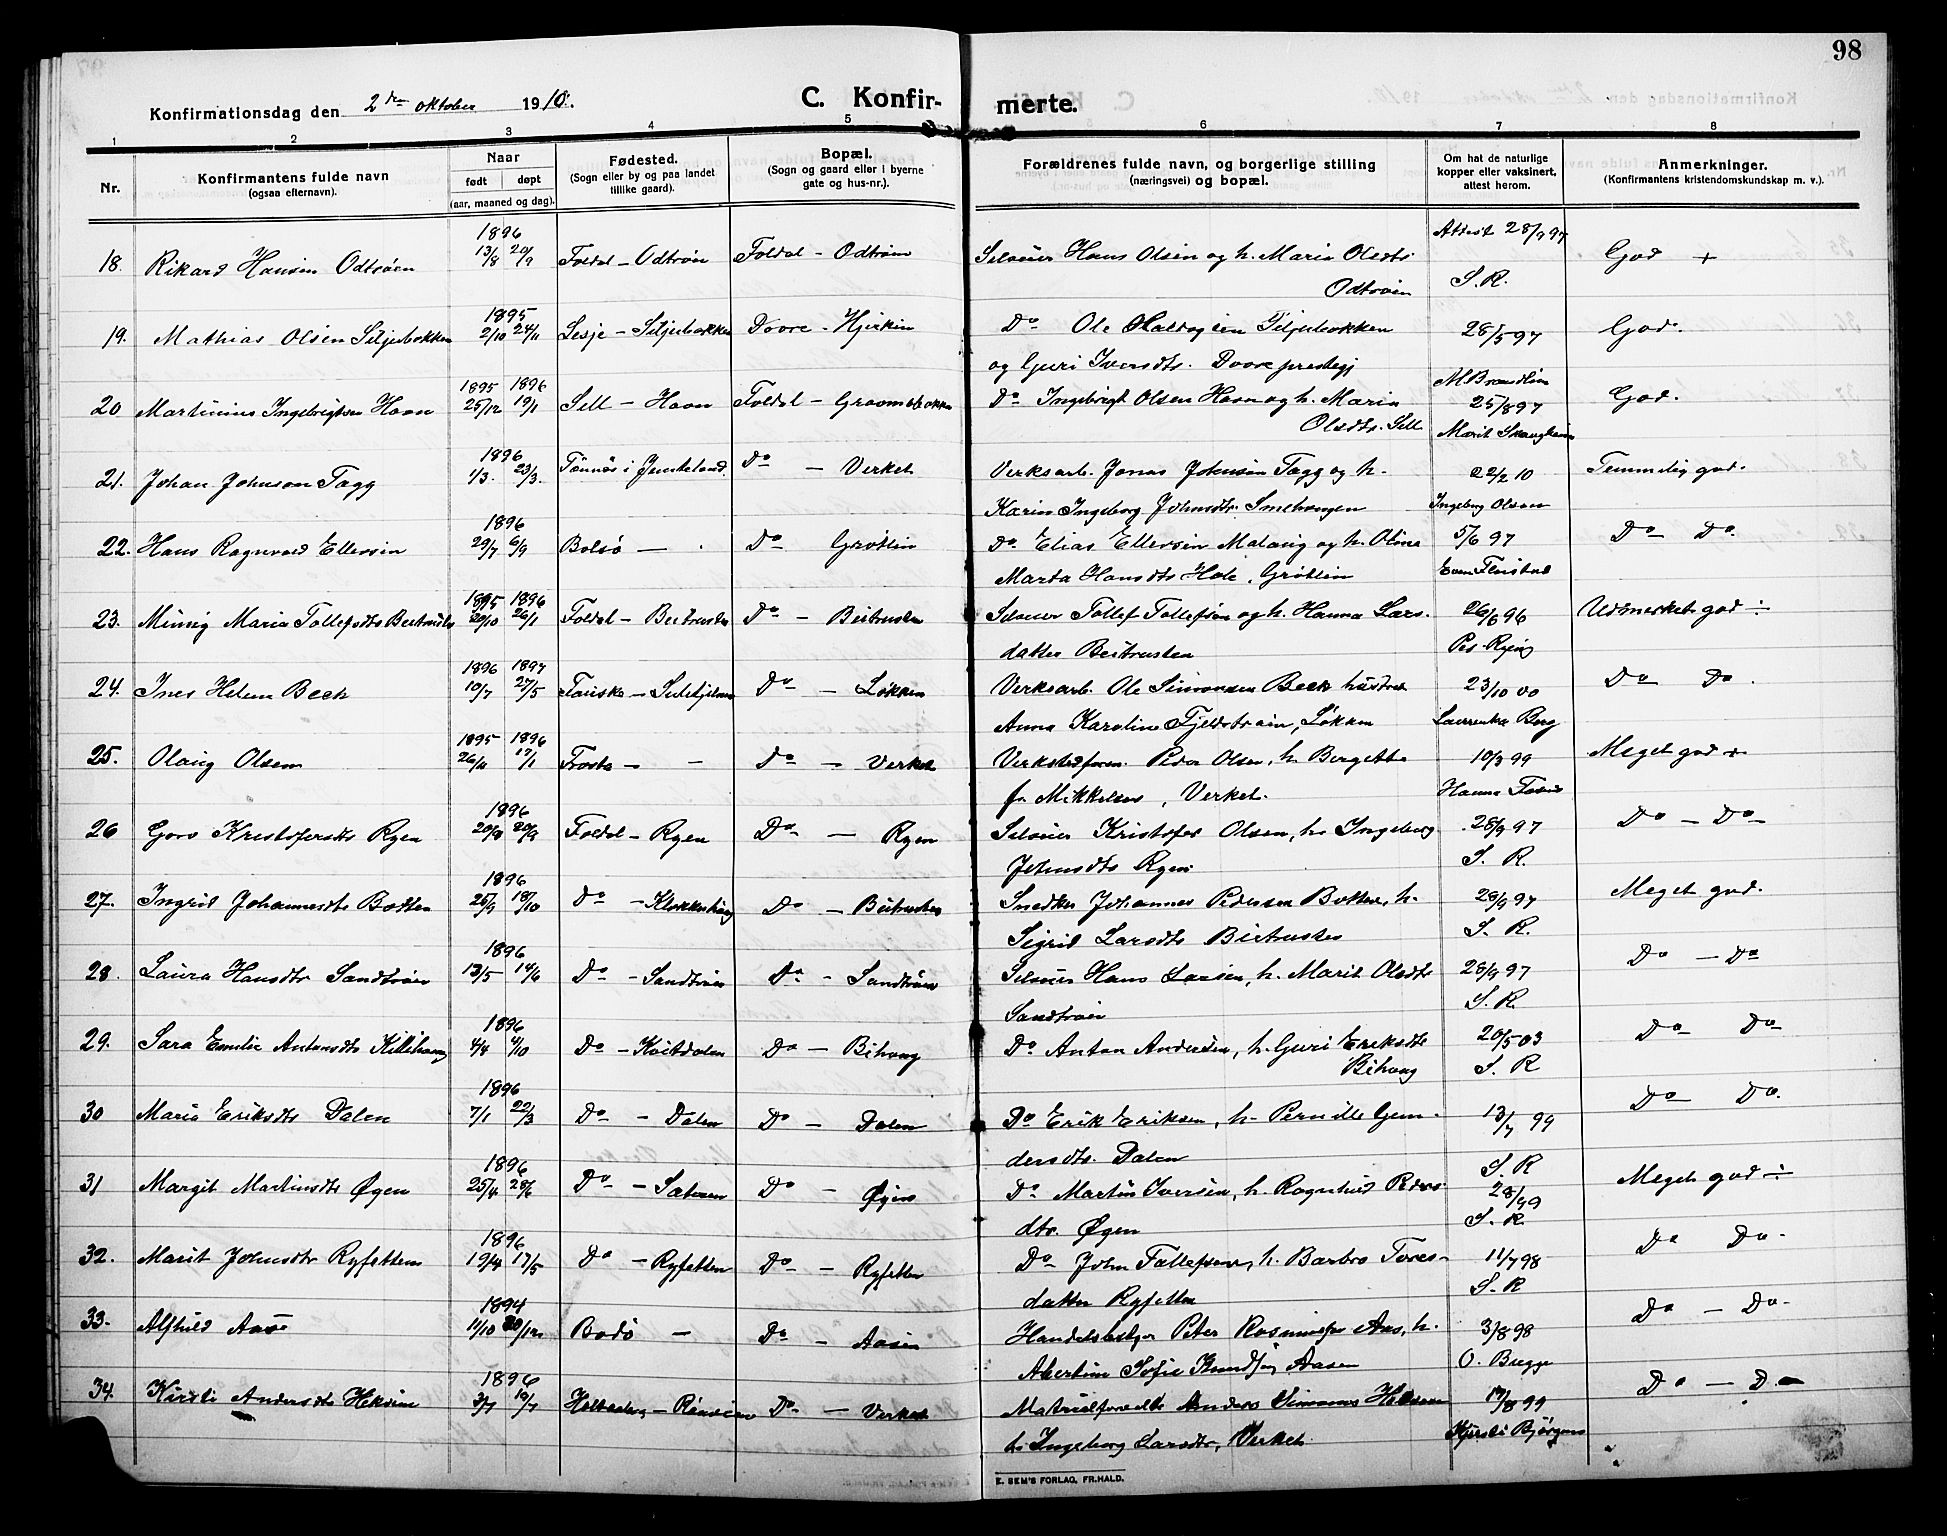 98
Konfirmationsdag den 2den oktober 1910.
C. Konfirmerte.
1 2 3 4 5 6 7 8
Nr.
Konfirmantens fulde navn
(ogsaa efternavn).
Naar
født døpt
(aar, maaned og dag).
Fødested.
(Sogn eller by og paa landet
tillike gaard).
Bopæl.
(Sogn og gaard eller i byerne
gate og hus-nr.).
Forældrenes fulde navn, og borgerlige stilling
(næringsvei) og bopæl.
Om hat de naturlige
kopper eller vaksinert,
attest herom.
Anmerkninger.
(Konfirmantens kristendomskundskap m. v.).
1896 Attest 28/9 97
18. Rikard Hansen Odtrøen 13/8 20/9 Foldal - Odtrøen Foldal - Odtrøen Selveier Hans Olsen og h. Marie Olsdtr God +
Odtrøen S. R.
1895
19. Mathias Olsen Siljebakken 2/10 24/11 Lesje - Siljebakken Dovre - Hjerkin Do Ole Siljebakken 28/5 97 God.
og Guri Iversdtr. Dovre prestegj
1895 1896 M Brændlien
20 Martinius Ingebrigtsen Havn 25/12 19/1 Sell - Havn Foldal - Do Ingebrigt Olsen Havn og h. Marie 25/8 97 God.
Olsdtr. Sell Marit
1896
21. Johan Johnsen Tagg 1/3. 23/3. Tønnes i Do - Verket Verksarb. Jonas Johnsen Tagg og h. 22/2 10 Temmelig god.
Karin Ingeborg Johnsdtr. Ingeborg Olsen
1896
22. Hans Ragnvald Ellersen 29/7 6/9 Bolsø - Do Grøtlin Do. Elias Ellersen og h. Oline 5/6 97 Do Do.
Marta Hansdtr Hole, Grøtlin
1895 1896
23. Minnig Maria Tollefsdtr 20/10 26/1 Foldal - Do - Selveier Tollef Tollefsen og h. Hanna Lars- 26/6 96 Udmerket god ÷
datter Per Ryeng
1896 1897
24. Ines Helene Beck 10/7 27/5 Fauske - Do - Løkken Verksarb. Ole Simonsen Beck hustru 23/10 00 Do Do.
Anna Karoline Løkken Berg
1895 1896
25. Olaug Olsen 26/11 17/1 Frosta - - Do - Verket Peder Olsen, h. Bergette 10/3 99 Meget god +
f. Mikkelsen, Verket. Hanna
1896
26 Goro Kristofersdtr Ryen 20/8 20/9 Foldal - Ryen Do - Ryen Selveier Kristofer Olsen, h. Ingeborg 28/9 97 Do - Do
Johnsdtr Ryen S. R.
1896
27. Ingrid Johannesdtr Botten 25/9 18/10 Do - Klokkerhaug Do - Snedker Johannes Pedersen Botten, h. 28/9 97 Meget god.
Sigrid Larsdtr S. R.
1896
28. Laura Hansdtr Sandtrøen 13/5 14/6 Do - Sandtrøen Do - Sandtrøen Selveier Hans Larsen, h. Marit Olsdtr 28/9 97 Do - Do
Sandtrøen S. R.
1896
29. Sara Emilie Antonsdtr 4/8 4/10 Do - Do - Bihaug Do Anton Andersen, h. Guri Eriksdtr 20/5 03 Do Do
Bihaug S. R
1896
30 Marie Eriksdtr Dalen 7/1 22/3 Do - Dalen Do - Dalen Do Erik Eriksen, h. Pernille Gun- 13/7 99 Do Do.
dersdtr. Dalen S. R
1896
31 Margit Martinsdtr Øgen 25/4 28/6 Do - Do - Øgen Do Martin Iversen, h. Ragnhild Peders- 28/ 99 Meget god ÷
dtr. Øgen S. R.
1896
32. Marit Johnsdtr Ryfetten 19/4 17/5 Do - Ryfetten Do - Ryfetten Do John Tollefsen, h. Barbro Tores- 11/7 98 Do Do.
datter Ryfetten S. R
1894
33. Alfhild Aase 11/10 /12 Bodø - Do - Aasen Peter h. 3/8 98 Do - Do.
Sofie Aasen O. Bugge
1896
34. Kirsti Andersdtr 3/7 19/7 Do - Verket Anders Simonsen 17/8 99 Do - Do
h. Ingeborg Larsdtr, Verket
E. SEM'S FORLAG, FR.HALD.